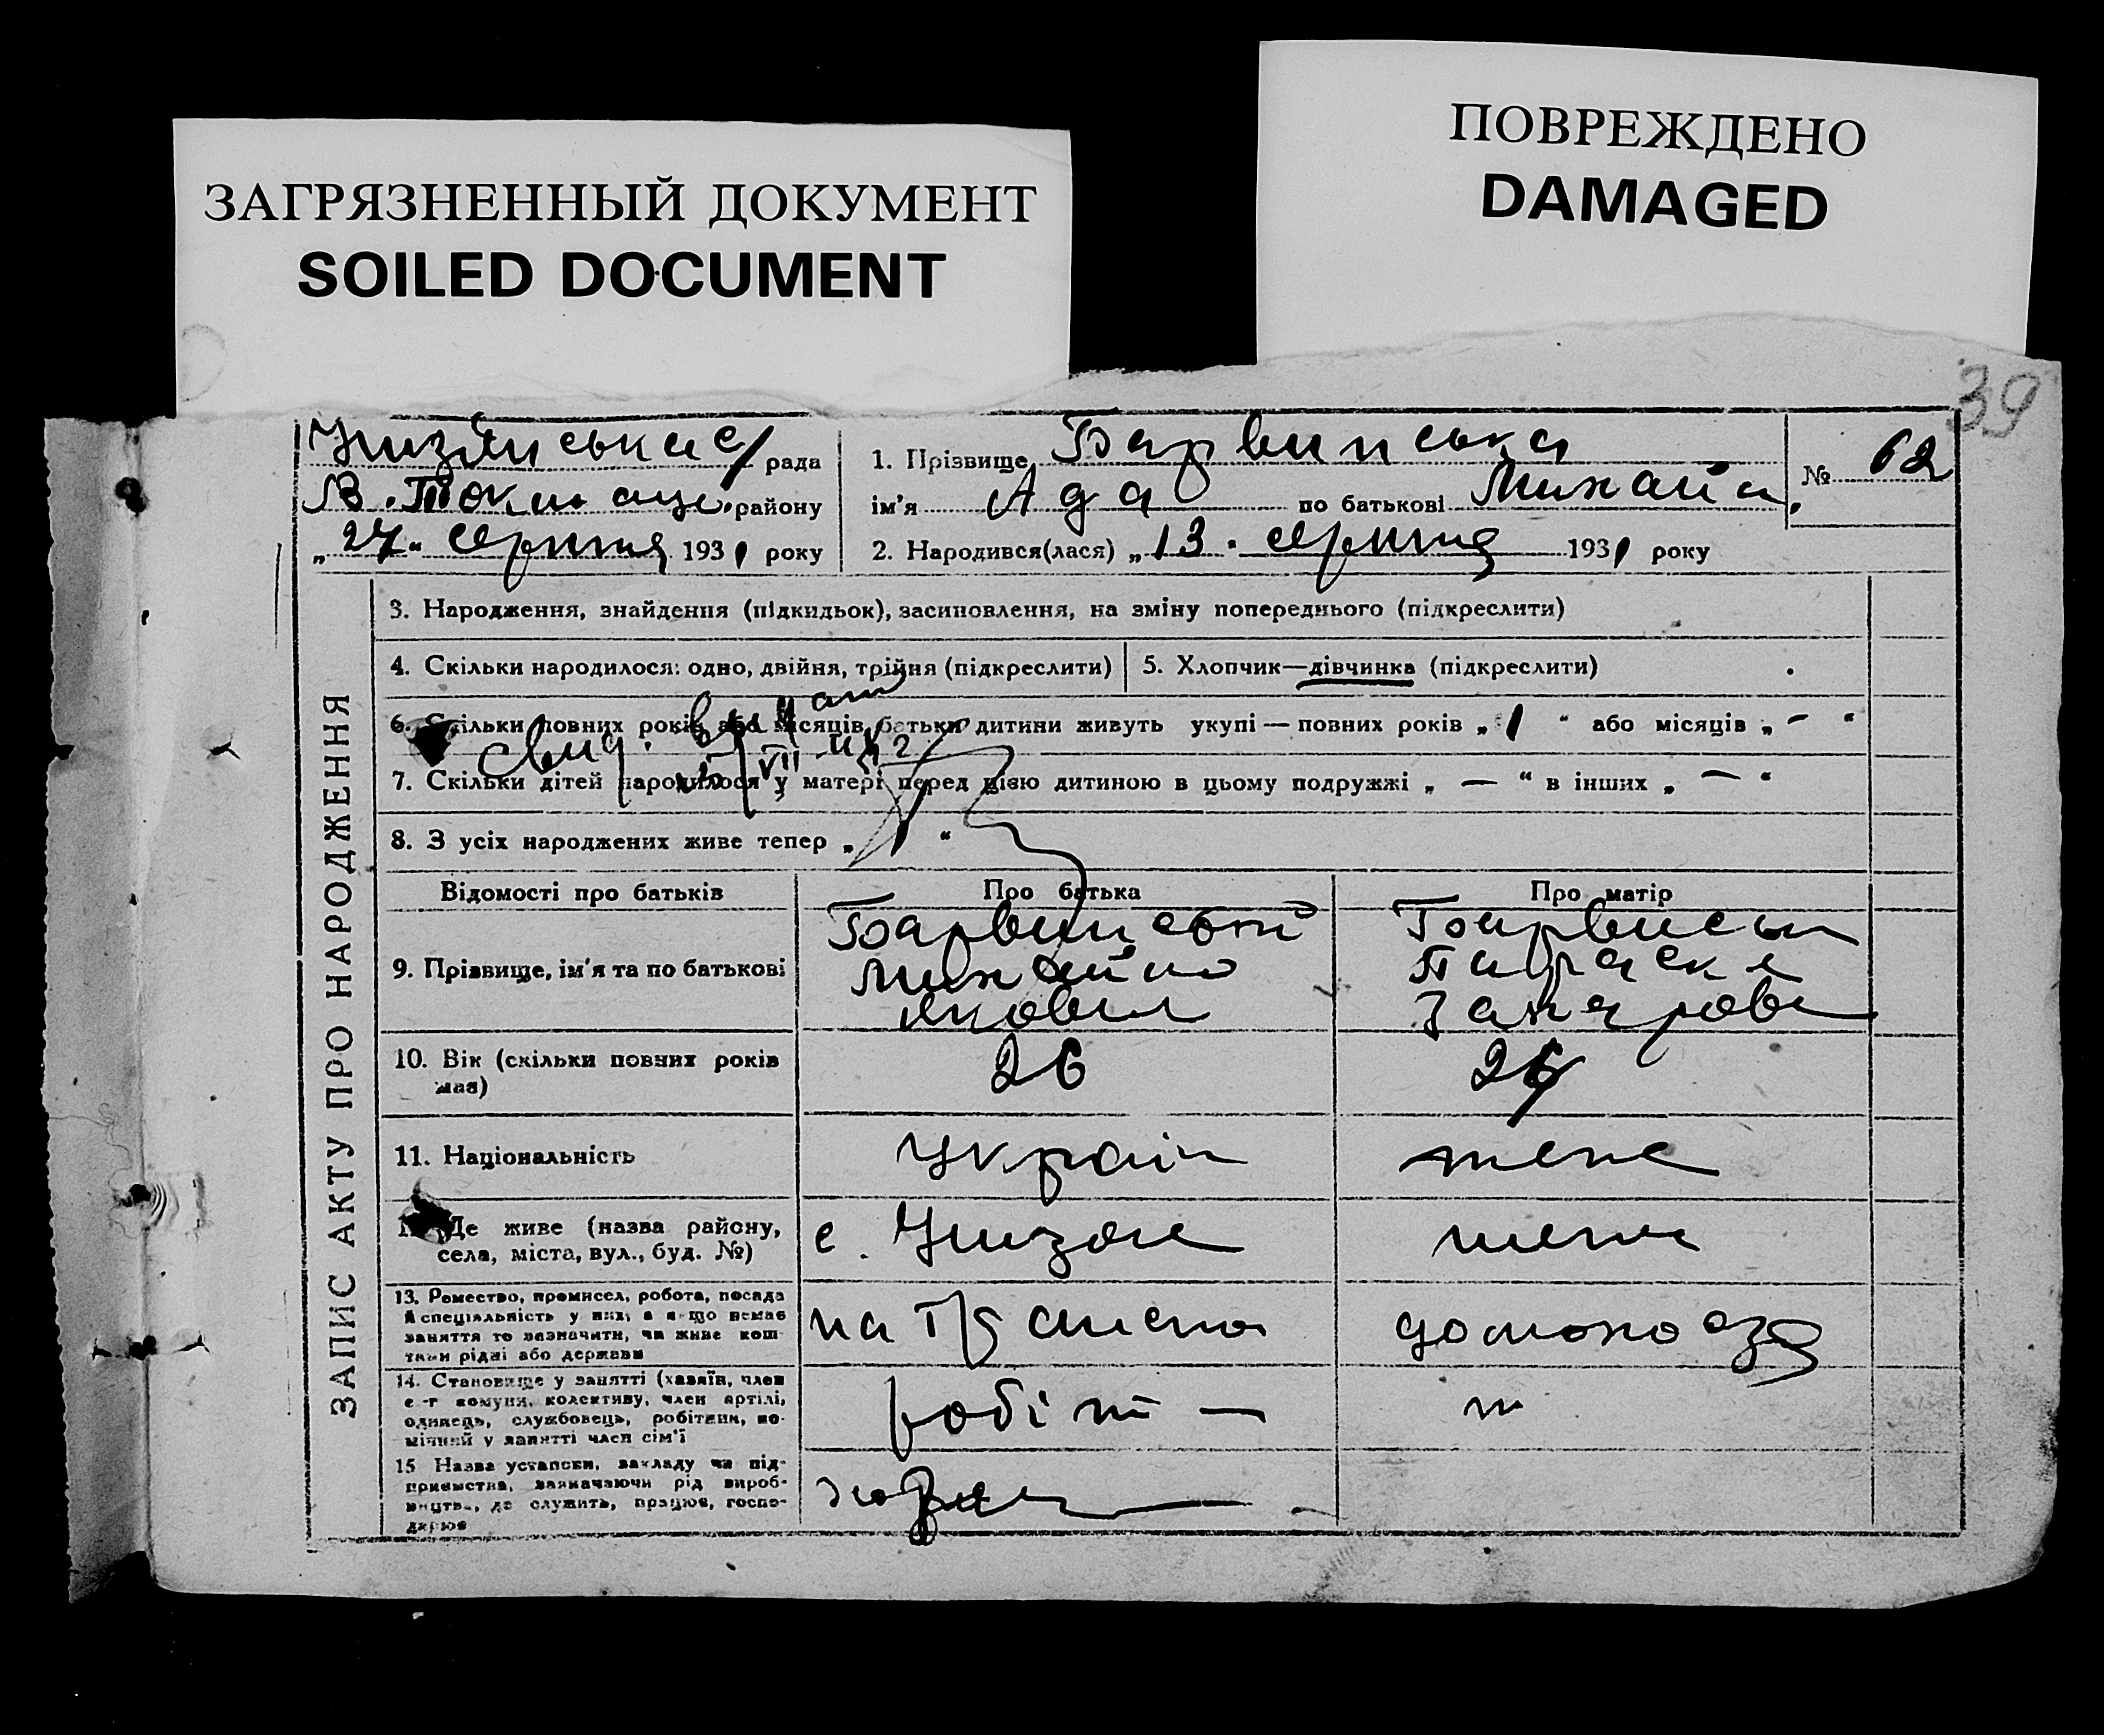 ЗАГРЯЗНЕННЫЙ ДОКУМЕНТ
SOILED DOCUMENT
ПОВРЕЖДЕНО
DAMAGED
39
рада
В. Токмац. району
„27“ серпня 1931 року
1. Прізвище Барвинська
ім'я Ада по батькові Михайл.
№ 62
2. Народився(лася) „13. серпня 1931 року
ЗАПИС АКТУ ПРО НАРОДЖЕННЯ
3. Народження, знайдення (підкидьок), засиновлення, на зміну попереднього (підкреслити)
4. Скільки народилося: одно, двійня, трійня (підкреслити)
5. Хлопчик—дівчинка (підкреслити)
6. Скільки повних років або місяців батьки дитини живуть укупі — повних років „ 1 “ або місяців „ – “
7. Скільки дітей народилося у матері перед цією дитиною в цьому подружжі „ — “ в інших „ — “
8. З усіх народжених живе тепер „ 1 “
Відомості про батьків
Про батька
Про матір
9. Прізвище, ім'я та по батькові
Барвинский
Михайло
Яковл
Параска
Захарова
10. Вік (скільки повних років має)
26
11. Національність
Україн
теже
12. Де живе (назва району,
села, міста, вул., буд. №)
с.
теже
13. Ремество, промисел, робота, посада
й спеціяльність у них, а якщо немає
заняття то зазначити, чи живе кош-
тами рідні або держави
на
домохозя
14. Становище у занятті (хазяїн, член
с.-г комуни, колективу, член артілі,
одинець, службовець, робітник, по-
мічний у занятті член сім'ї
робіт —
15 Назва установи, закладу чи під-
приємства, зазначаючи рід вироб-
ництва, де служить, працює, госпо-
дарює